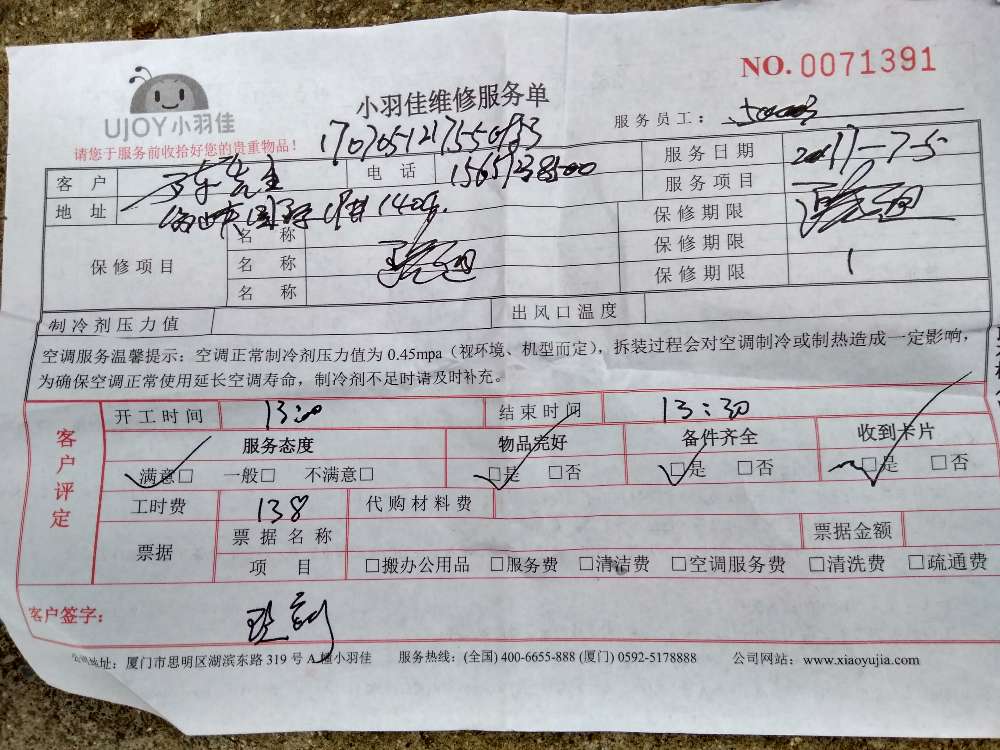 NO. 0071391
UJOY小羽佳
小羽佳维修服务单
服务员工：
请您于服务前收拾好您的贵重物品！
客户 陈先生 电话 服务日期 2017-7-5
地址 服务项目
保修项目 名称 保修期限
名称 保修期限
名称 保修期限 1
制冷剂压力值 出风口温度
空调服务温馨提示：空调正常制冷剂压力值为 0.45mpa（视环境、机型而定），拆装过程会对空调制冷或制热造成一定影响，
为确保空调正常使用延长空调寿命，制冷剂不足时请及时补充。
客户评定
开工时间 13:00 结束时间 13:30
服务态度 物品完好 备件齐全 收到卡片
满意□ 一般□ 不满意□ □是 □否 □是 □否 □是 □否
工时费 138 代购材料费
票据 票据名称 票据金额
项目 □搬办公用品 □服务费 □清洁费 □空调服务费 □清洗费 □疏通费
客户签字：
公司地址：厦门市思明区湖滨东路 319 号 A 幢小羽佳 服务热线：(全国) 400-6655-888 (厦门) 0592-5178888 公司网站：www.xiaoyujia.com